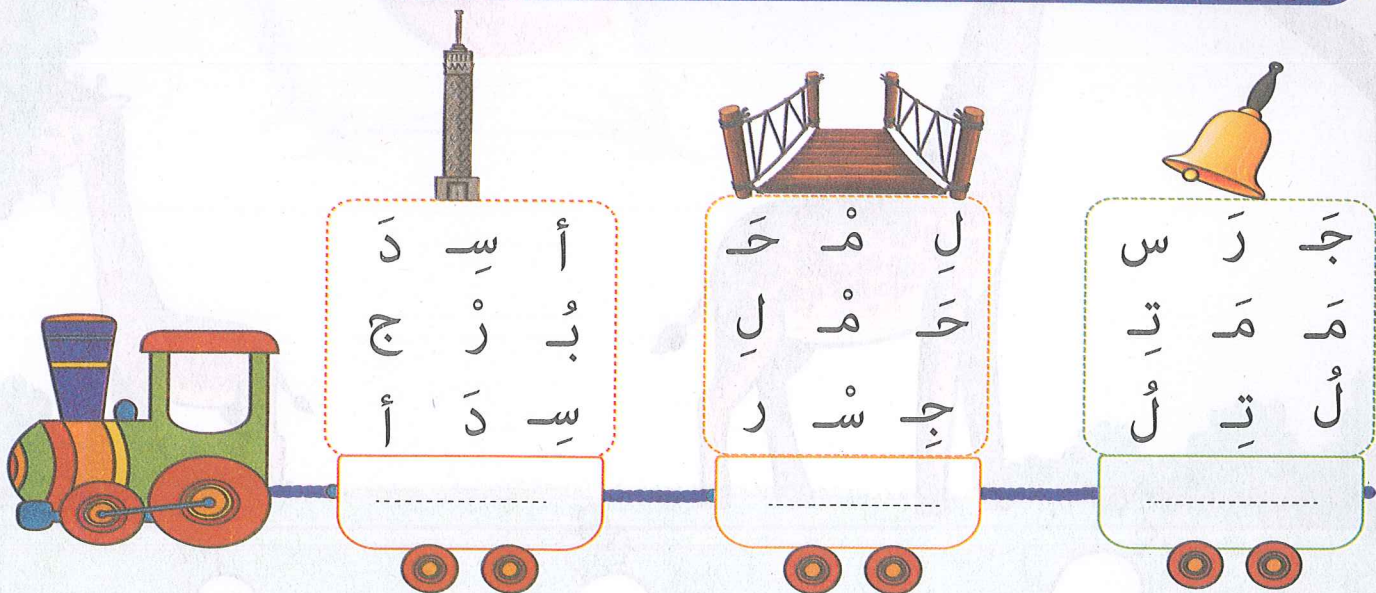 جَـ رَ س
مَـ مَـ تِـ
لُ تِـ لُ
لِ ـمْـ حَـ
حَـ ـمْـ لِ
جِـ ـسْـ ر
أ ـسِـ دَ
بُـ رْ ج
سِـ دَ أ